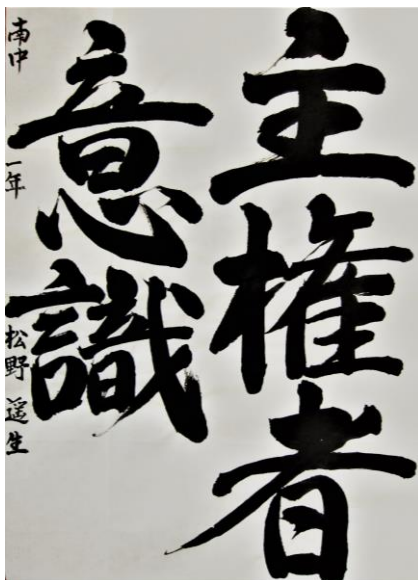 主権者
意識
南中 一年 松野遥生